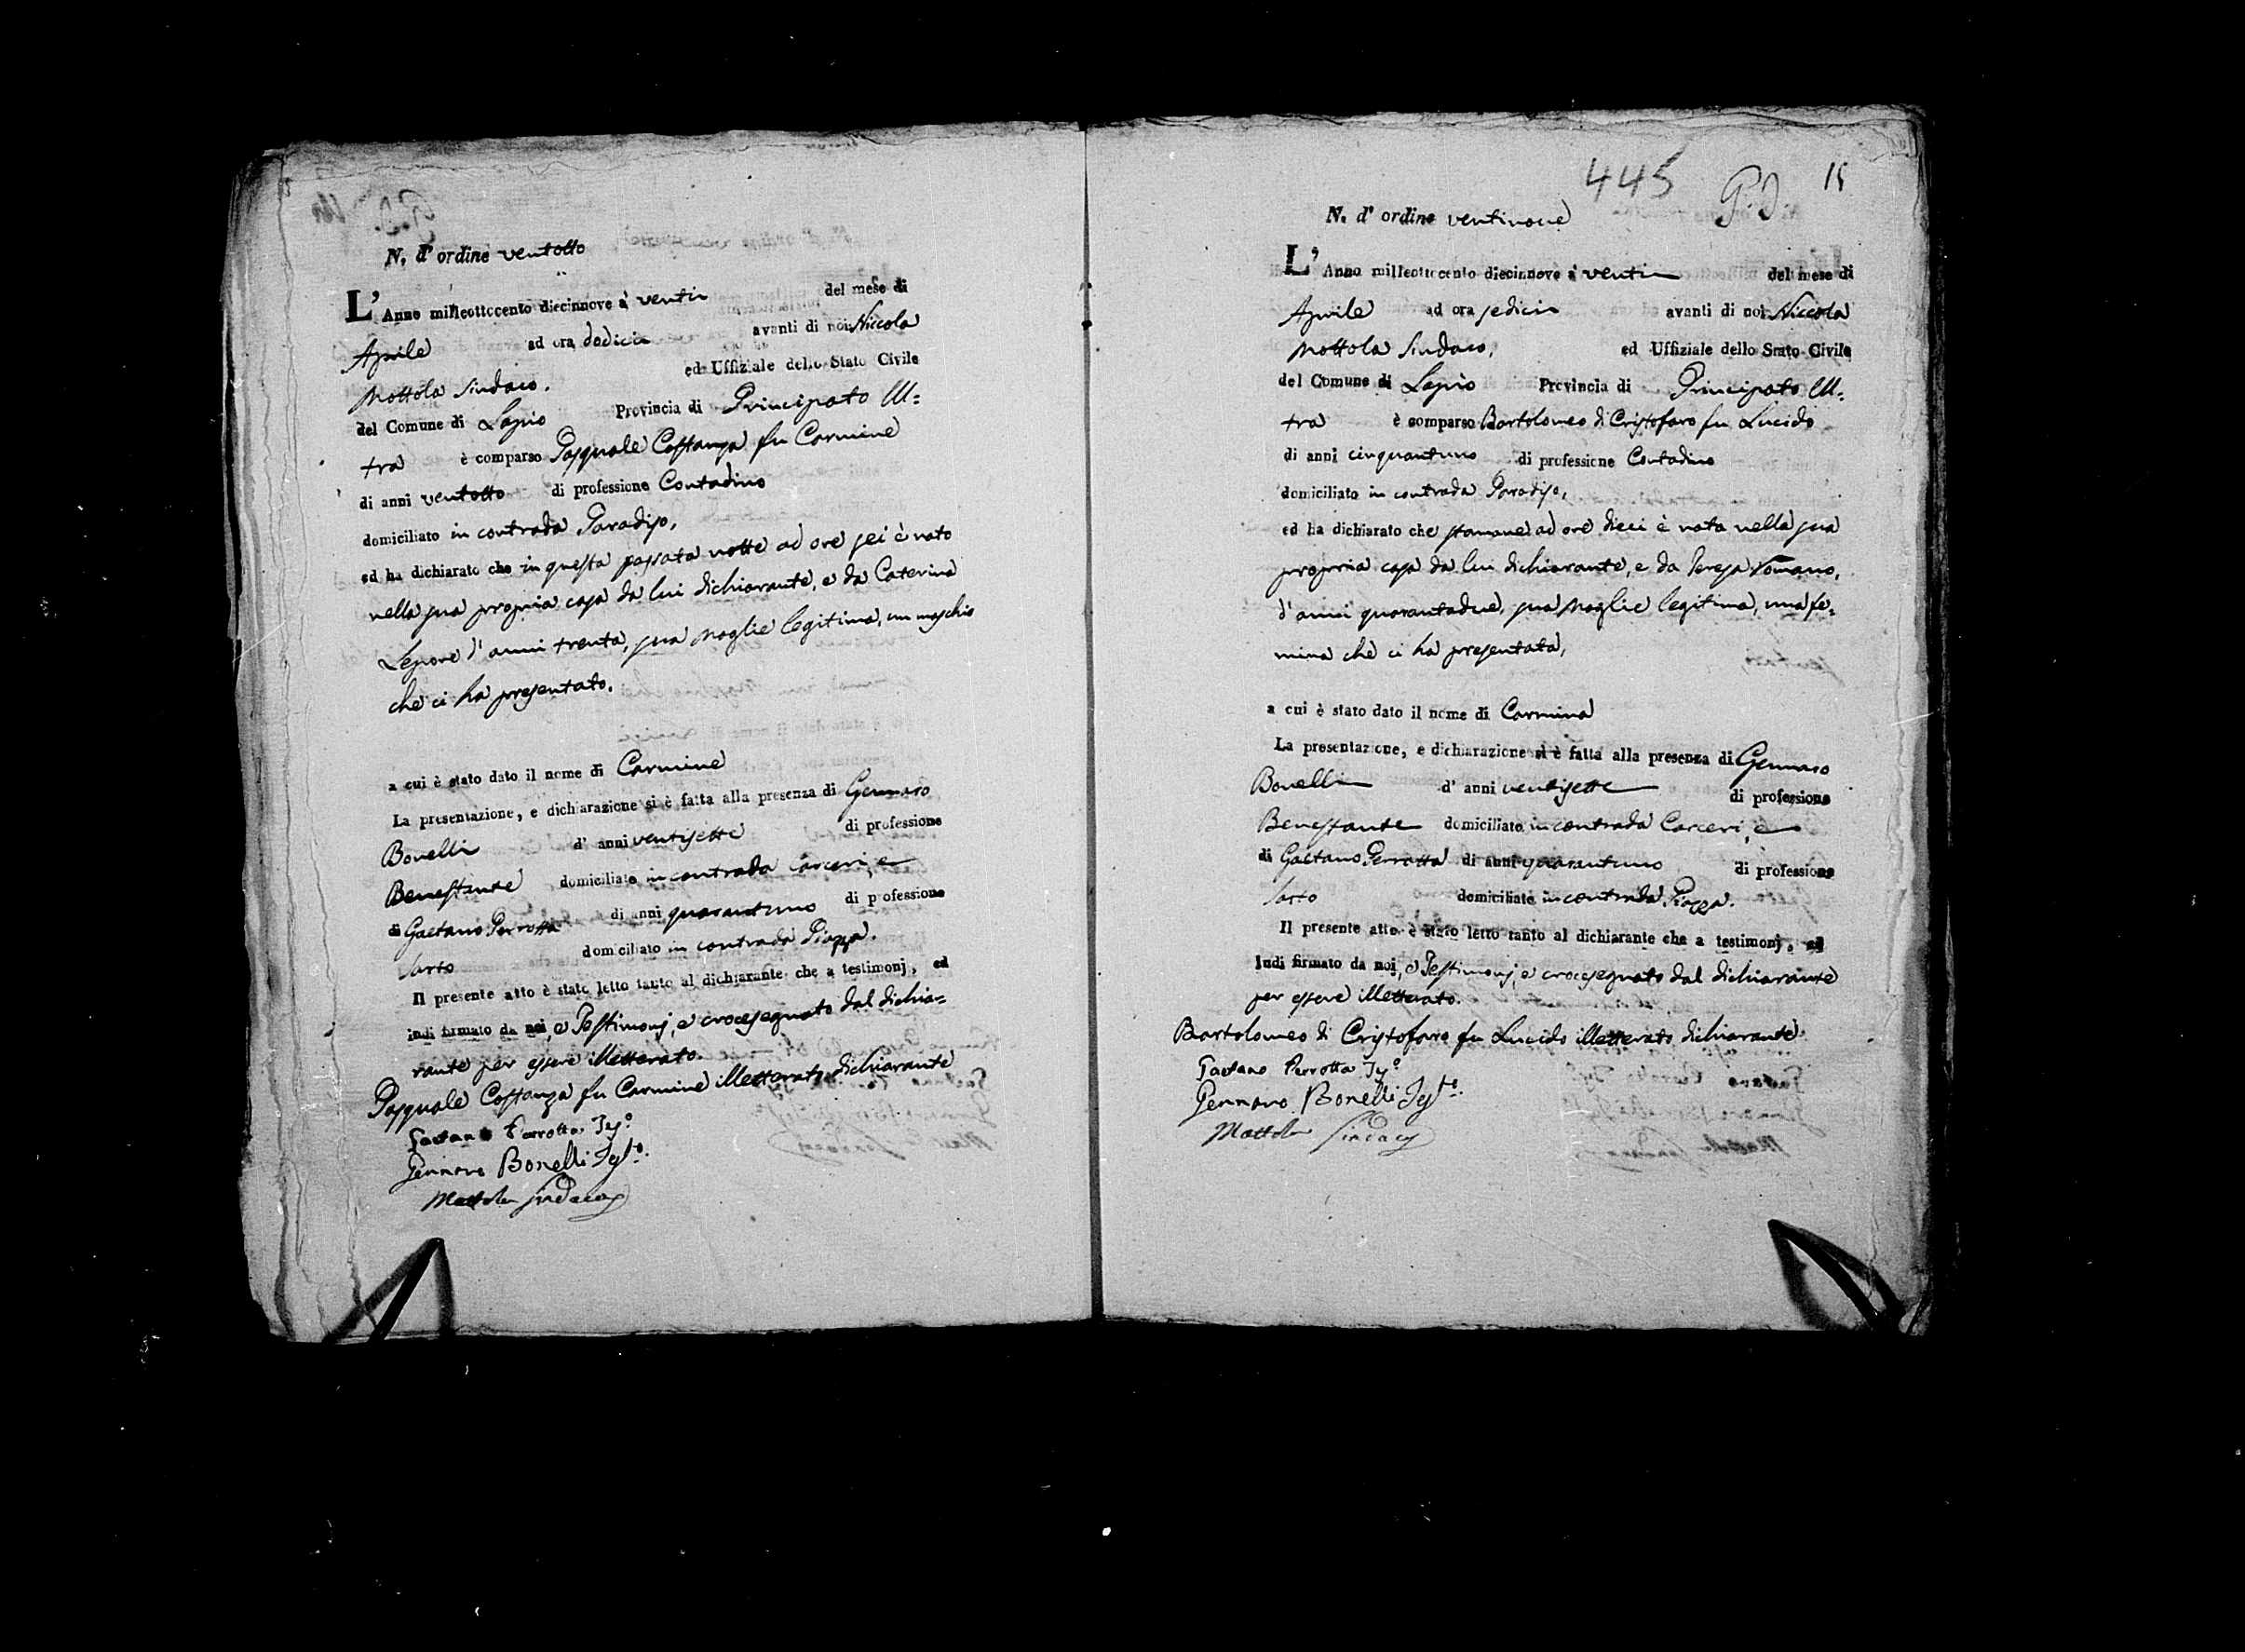 N. d' ordine ventotto
L' Anno milleottocento diecinnove a' venti del mese di
Aprile ad ora dodici avanti di noi Niccola
Mottola Sindaco. ed Uffiziale dello Stato Civile
del Comune di Lapio Provincia di Principato Ul=
tra è comparso Pasquale Costanza fu Carmine
di anni ventotto di professione Contadino
domiciliato in contrada Paradiso,
ed ha dichiarato che in questa passata notte ad ore sei è nato
nella sua propria casa da lui dichiarante, e da Caterina
Lepore d' anni trenta, sua moglie legitima, un maschio
che ci ha presentato.
a cui è stato dato il nome di Carmine
La presentazione, e dichiarazione si è fatta alla presenza di Gennaro
Bonelli d' anni ventisette di professione
Benestante domiciliato in contrada Carceri, e
di Gaetano Perrotta di anni quarantuno di professione
Sarto domiciliato in contrada Piazza.
Il presente atto è stato letto tanto al dichiarante che a testimonj, ed
indi firmato da noi, e Testimonj, e crocesegnato dal dichia=
rante per essere illetterato.
Pasquale Costanza fu Carmine illetterato dichiarante
Gaetano Perrotta Tes.º
Gennaro Bonelli Test.º
Mottola Sindaco
445 P.D. 15
N. d' ordine ventinove
L' Anno milleottocento diecinnove a' venti del mese di
Aprile ad ora sedici avanti di noi Niccola
Mottola Sindaco, ed Uffiziale dello Stato Civile
del Comune di Lapio Provincia di Principato Ul=
tra è comparso Bartolomeo di Cristofaro fu Lucido
di anni cinquantuno di professione Contadino
domiciliato in contrada Paradiso,
ed ha dichiarato che stamane ad ore dieci è nata nella sua
propria casa da lui dichiarante, e da Teresa Romano,
d' anni quarantadue, sua moglie legitima, una fe=
mina che ci ha presentata,
a cui è stato dato il nome di Carmina
La presentazione, e dichiarazione si è fatta alla presenza di Gennaro
Bonelli d' anni ventisette di professione
Benestante domiciliato in contrada Carceri, e
di Gaetano Perrotta di anni quarantuno di professione
Sarto domiciliato in contrada Piazza.
Il presente atto è stato letto tanto al dichiarante che a testimonj, ed
Indi firmato da noi, e Testimonj, e crocesegnato dal dichiarante
per essere illetterato.
Bartolomeo di Cristofaro fu Lucido illetterato dichiarante
Gaetano Perrotta Tes.º
Gennaro Bonelli Test.º
Mottola Sindaco